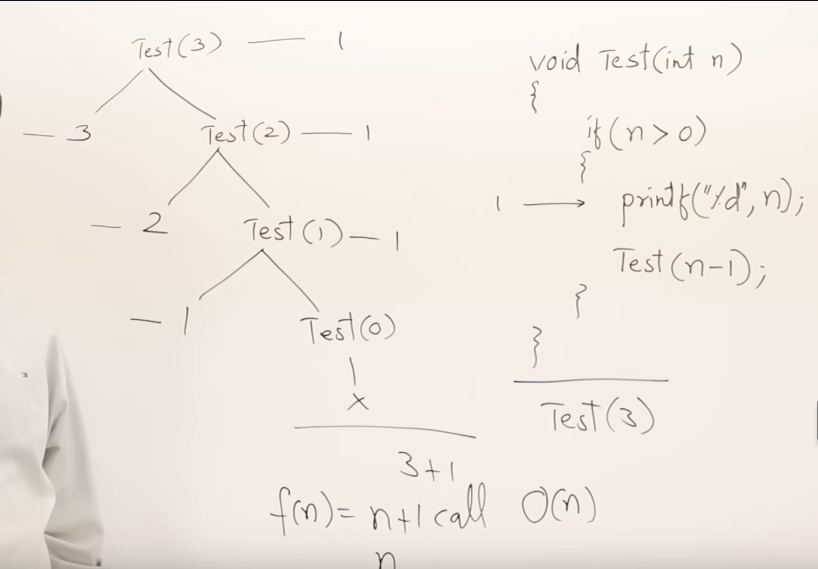 Test(3) — 1
— 3 Test(2) — 1
— 2 Test(1) — 1
— 1 Test(0)
x
3+1
f(n) = n+1 call O(n)
n
void Test(int n)
{
if(n>0)
{
1 → printf("%d", n);
Test(n-1);
}
}
Test(3)